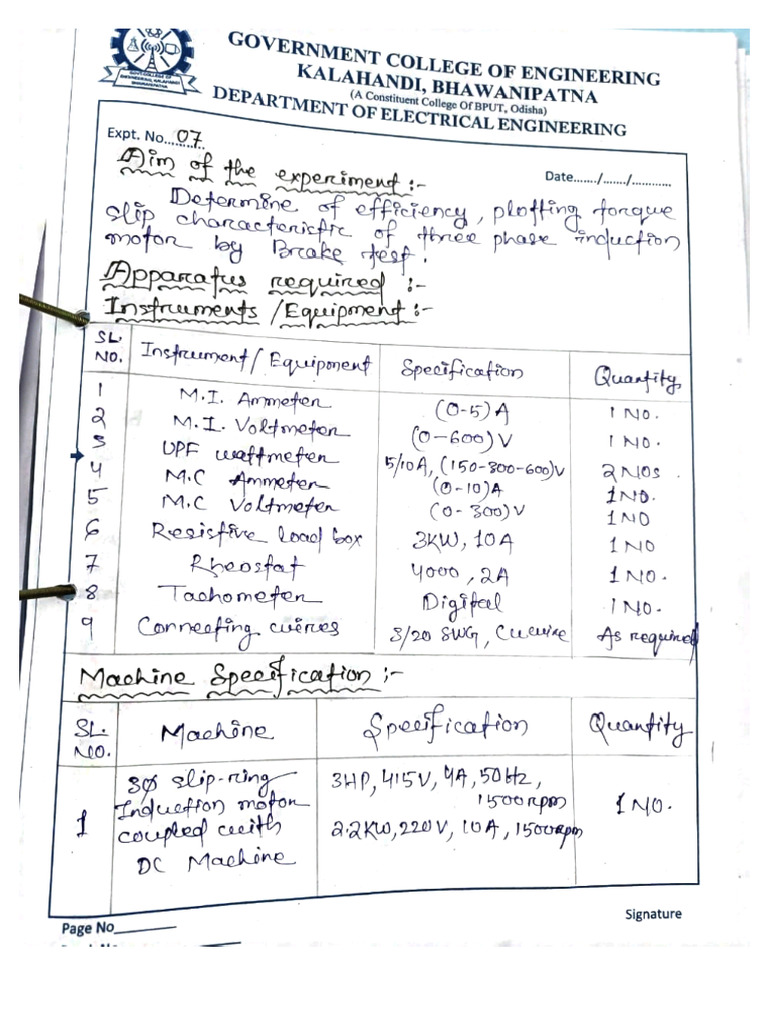 GOVT. COLLEGE OF
ENGINEERING, KALAHANDI
BHAWANIPATNA
GOVERNMENT COLLEGE OF ENGINEERING
KALAHANDI, BHAWANIPATNA
(A Constituent College Of BPUT, Odisha)
DEPARTMENT OF ELECTRICAL ENGINEERING
Expt. No. 07
Date......./......./............
Aim of the experiment:-
Determine of efficiency, plotting torque
slip characterictic of three phase induction
motor by Brake test.
Apparatus required :-
Instruments/Equipment:-
SL. NO. Instrument/Equipment Specification Quantity
1 M.I. Ammeter (0-5)A 1 NO.
2 M.I. Voltmeter (0-600)V 1 NO.
3 UPF wattmeter 5/10A, (150-300-600)V 2 NOS.
4 M.C Ammeter (0-10)A 1 NO.
5 M.C Voltmeter (0-300)V 1 NO
6 Resistive load box 3KW, 10A 1 NO
7 Rheostat 4000, 2A 1 NO.
8 Tachometer Digital 1 NO.
9 Connecting wires 3/20 SWG, Cu wire As required
Machine Specification:-
SL. NO. Machine Specification Quantity
3Ø slip-ring 3HP, 415V, 4A, 50Hz,
Induction motor 1500rpm
1 coupled with 2.2KW, 220V, 10A, 1500rpm 1 NO.
DC Machine
Signature
Page No